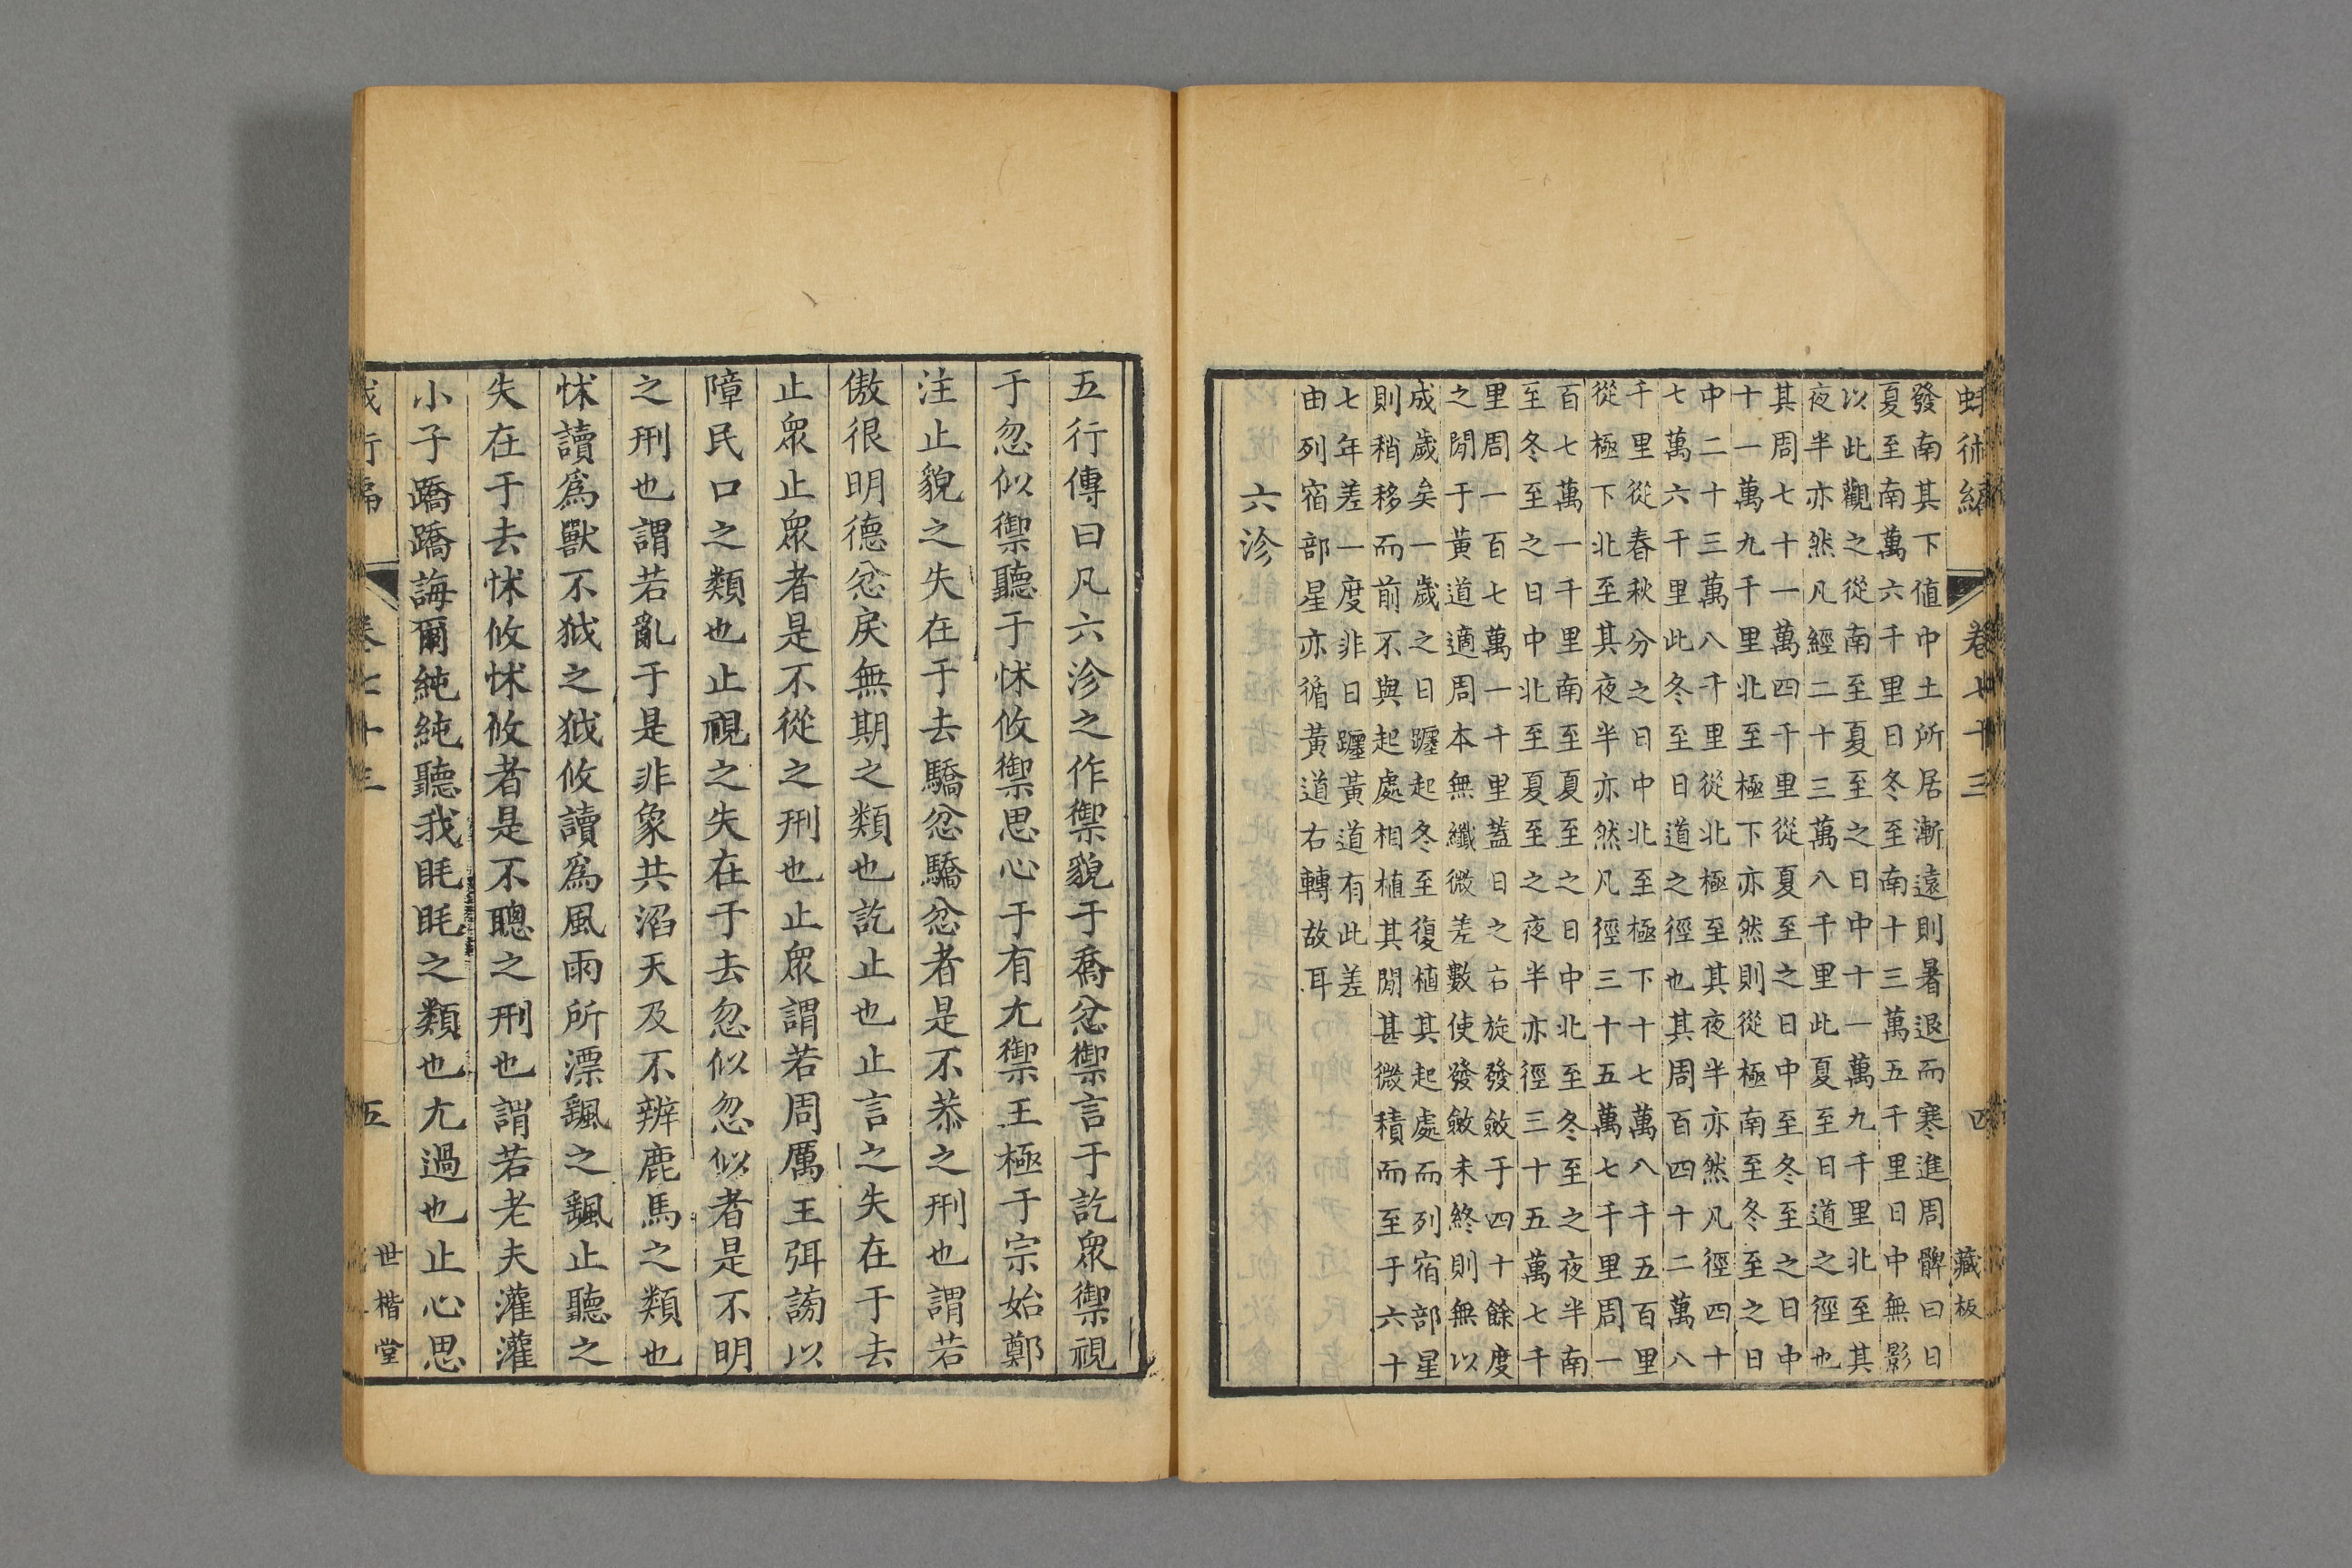 蛾術編 卷七十三 四 藏板
發南其下值中土所居漸遠則暑退而寒進周髀曰日
夏至南萬六千里日冬至南十三萬五千里日中無影
以此觀之從南至夏至之日中十一萬九千里北至其
夜半亦然凡經二十三萬八千里此夏至日道之徑也
其周七十一萬四千里從夏至之日中至冬至之日中
十一萬九千里北至極下亦然則從極南至冬至之日
中二十三萬八千里從北極至其夜半亦然凡徑四十
七萬六千里此冬至日道之徑也其周百四十二萬八
千里從春秋分之日中北至極下十七萬八千五百里
從極下北至其夜半亦然凡徑三十五萬七千里周一
百七萬一千里南至夏至之日中北至冬至之夜半南
至冬至之日中北至夏至之夜半亦徑三十五萬七千
里周一百七萬一千里蓋日之右旋發斂于四十餘度
之閒于黃道適周本無纖微差數使發斂未終則無以
成歲矣一歲之日躔起冬至復植其起處而列宿部星
則稍移而前不與起處相植其閒甚微積而至于六十
七年差一度非日躔黃道有此差
由列宿部星亦循黃道右轉故耳
六沴
五行傳曰凡六沴之作禦貌于喬忿禦言于訖眾禦視
于忽似禦聽于怵攸禦思心于有尤禦王極于宗始鄭
注止貌之失在于去驕忿驕忿者是不恭之刑也謂若
傲很明德忿戾無期之類也訖止也止言之失在于去
止眾止眾者是不從之刑也止眾謂若周厲王弭謗以
障民口之類也止視之失在于去忽似忽似者是不明
之刑也謂若亂于是非象共滔天及不辨鹿馬之類也
怵讀爲獸不狘之狘攸讀爲風雨所漂颻之颻止聽之
失在于去怵攸怵攸者是不聰之刑也謂若老夫灌灌
小子蹻蹻誨爾純純聽我眊眊之類也尤過也止心思
卷七十三 五 世楷堂